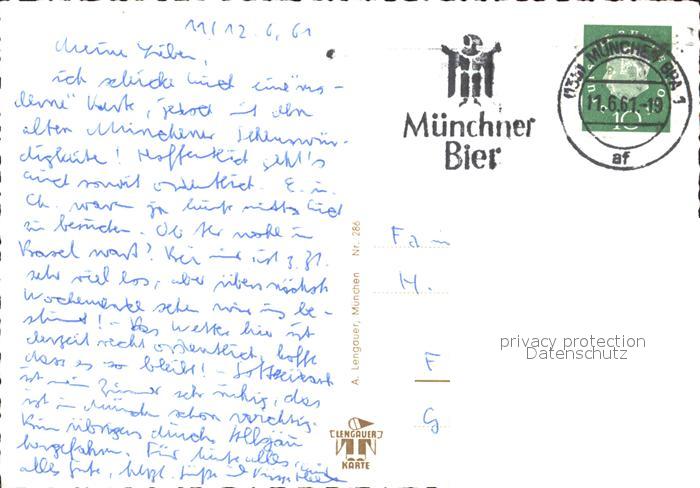 11/12.6.61
Meine Lieben,
ich schicke Euch eine "mo-
derne" Karte, jedoch mit den
alten Münchener Sehenswür-
digkeiten! Hoffentlich geht's
Euch soweit ordentlich. E. u.
Ch. waren ja heute mittag Euch
zu besuchen. Ob Ihr wohl in
Basel wart? Bei mir ist z. Zt.
sehr viel los, aber übernächstes
Wochenende sehen wir uns be-
stimmt! - Das Wetter hier ist
derzeit recht ordentlich, hoffe
dass es so bleibt! -
ist mein Zimmer sehr ruhig, das
ist in München schon wichtig.
Bin übrigens durchs Allgäu
hergefahren. Für heute alles
alles Gute, herzl. Grüße
Münchner
Bier
(13b) MÜNCHEN BPA 1
11.6.61.-19
af
10
Fam
H.
F
G
A. Lengauer, München Nr. 286
LENGAUER
KARTE
privacy protection
Datenschutz